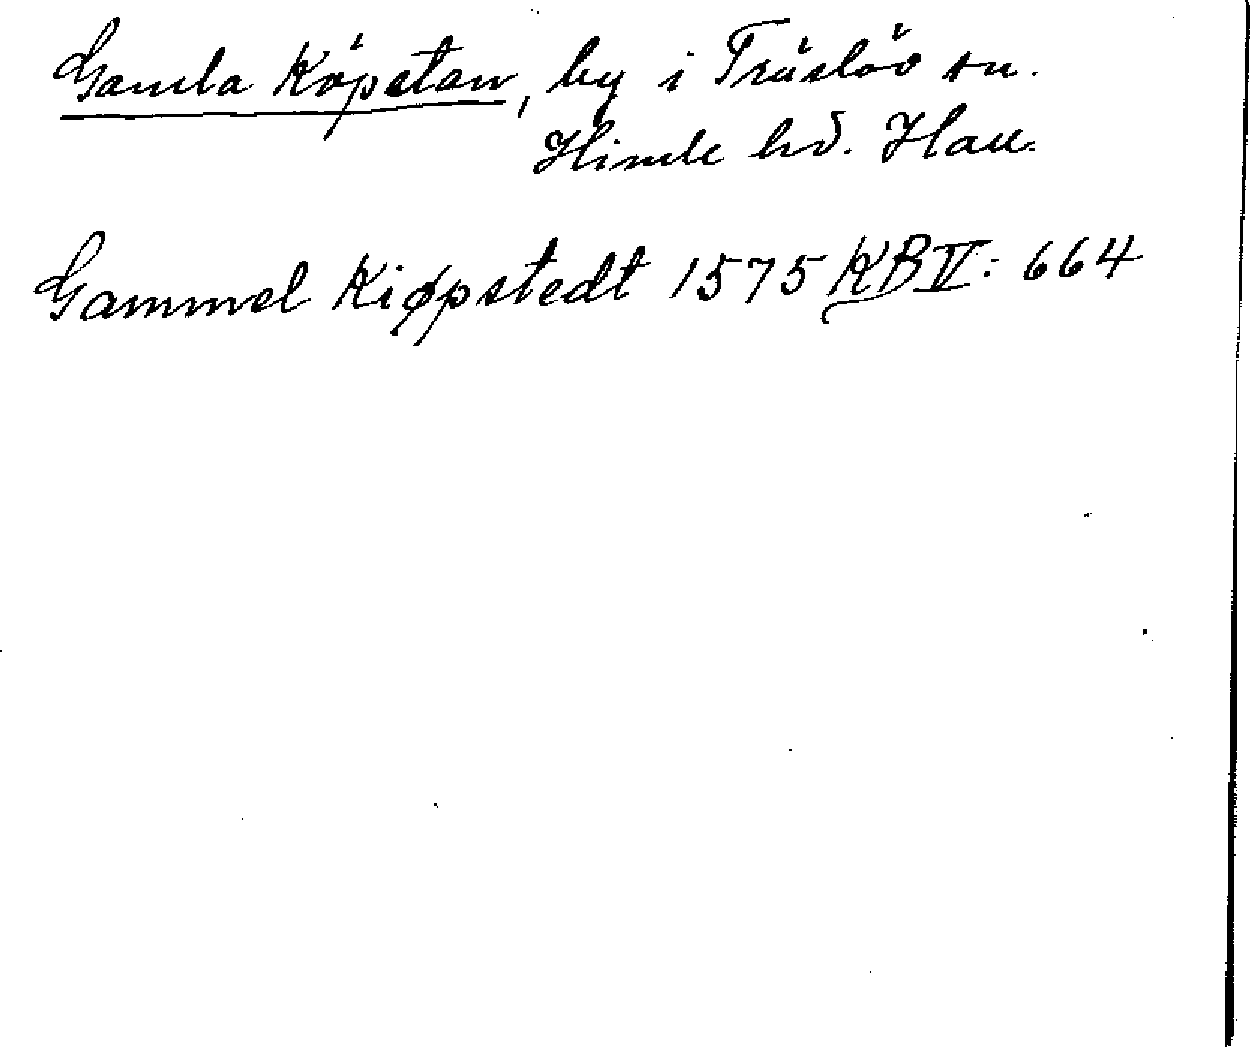 Gamla Köpstan, by i Träslöv sn.
Himle hd. Hall.
Gammel Kiøpstedt 1575 KB V: 664